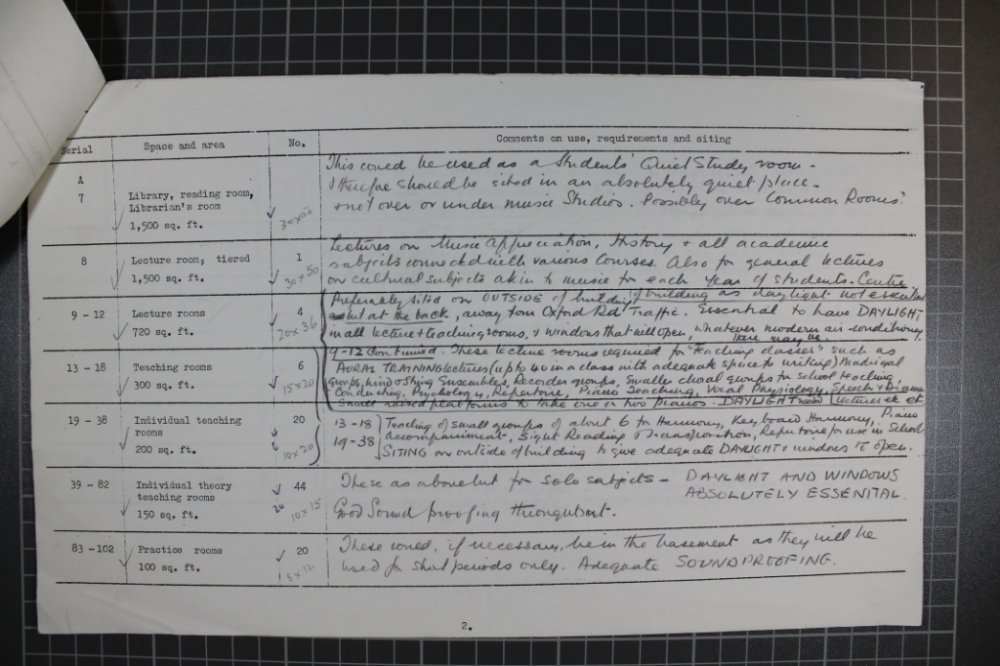 Serial Space and area No. Comments on use, requirements and siting
A
7 Library, reading room, Librarian's room
1,500 sq. ft.
This could be used as a Students' Quiet Study room -
& therefore should be sited in an absolutely quiet place -
& not over or under music Studios. Possibly over Common Rooms?
8 Lecture room, tiered 1
1,500 sq. ft. 30 x 50
Lectures on Music Appreciation, History & all academic
subjects connected with various Courses. Also for general lectures
on cultural subjects akin to music for each Year of students. Centre
of building as daylight not essential
9 - 12 Lecture rooms 4
720 sq. ft. 20 x 36
Preferably sited on OUTSIDE of building
but at the back, away from Oxford Rd Traffic. Essential to have DAYLIGHT
in all lecture & teaching rooms, & windows that will open, whatever modern air-conditioning
there may be.
9-12 Continued. These lecture rooms required for "Teaching classes" such as
AURAL TRAINING lectures (up to 40 in a class with adequate space for writing) Madrigal
groups, Wind & String Ensembles, Recorder groups, Smaller choral groups for School teaching
Conducting, Psychology, Repertoire, Piano Teaching, Vocal Physiology, Speech & Drama
Small raised platforms to take one or two pianos. DAYLIGHT lectures etc
13 - 18 Teaching rooms 6
300 sq. ft. 15 x 20
19 - 38 Individual teaching rooms 20
200 sq. ft. 10 x 20
13-18 Teaching of small groups of about 6 for Harmony, Keyboard Harmony, Piano
19-38 Accompaniment, Sight Reading & Transposition, Repertoire for use in School
SITING on outside of building to give adequate DAYLIGHT & windows to open.
39 - 82 Individual theory teaching rooms 44
150 sq. ft. 10 x 15
These as above but for solo subjects - DAYLIGHT AND WINDOWS
ABSOLUTELY ESSENITAL.
Good Sound proofing throughout.
83 -102 Practice rooms 20
100 sq. ft. 8 x 12
These could, if necessary, be in the basement as they will be
used for short periods only. Adequate SOUNDPROOFING.
2.